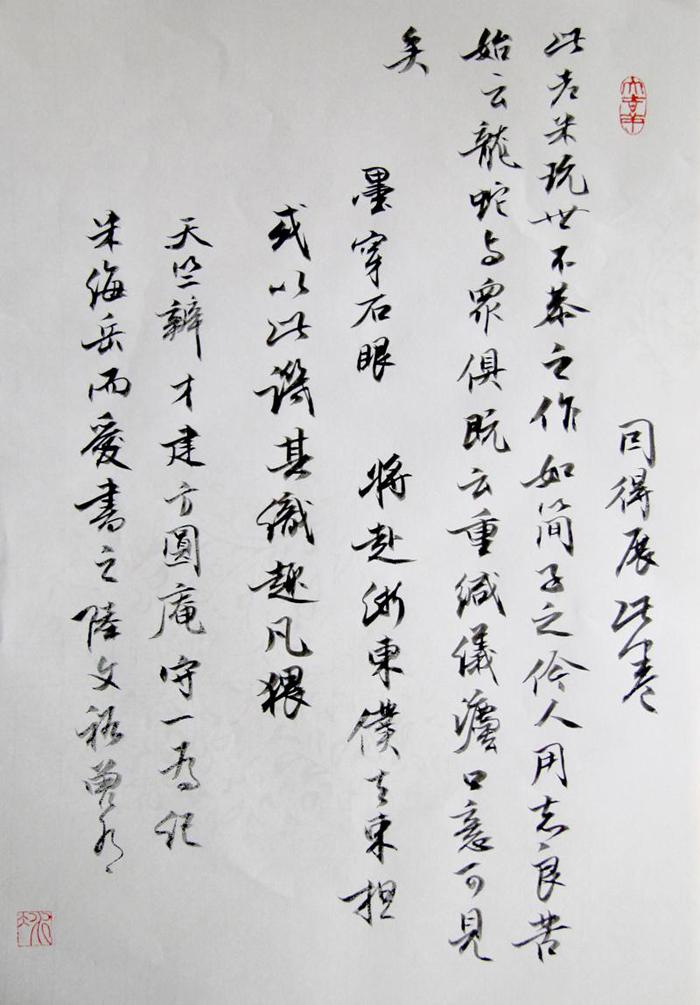 同得展此卷
此老米玩世不恭之作如简子之伶人用志良苦
始云龍蛇与眾俱既云重缄儀瀘口意可見
矣
墨穿石眼 將赴浙東僕夫東担
或以此譏其識趣凡猥
天竺辯才建方圓庵守一為記
米海岳而愛書之陸文裕曾有